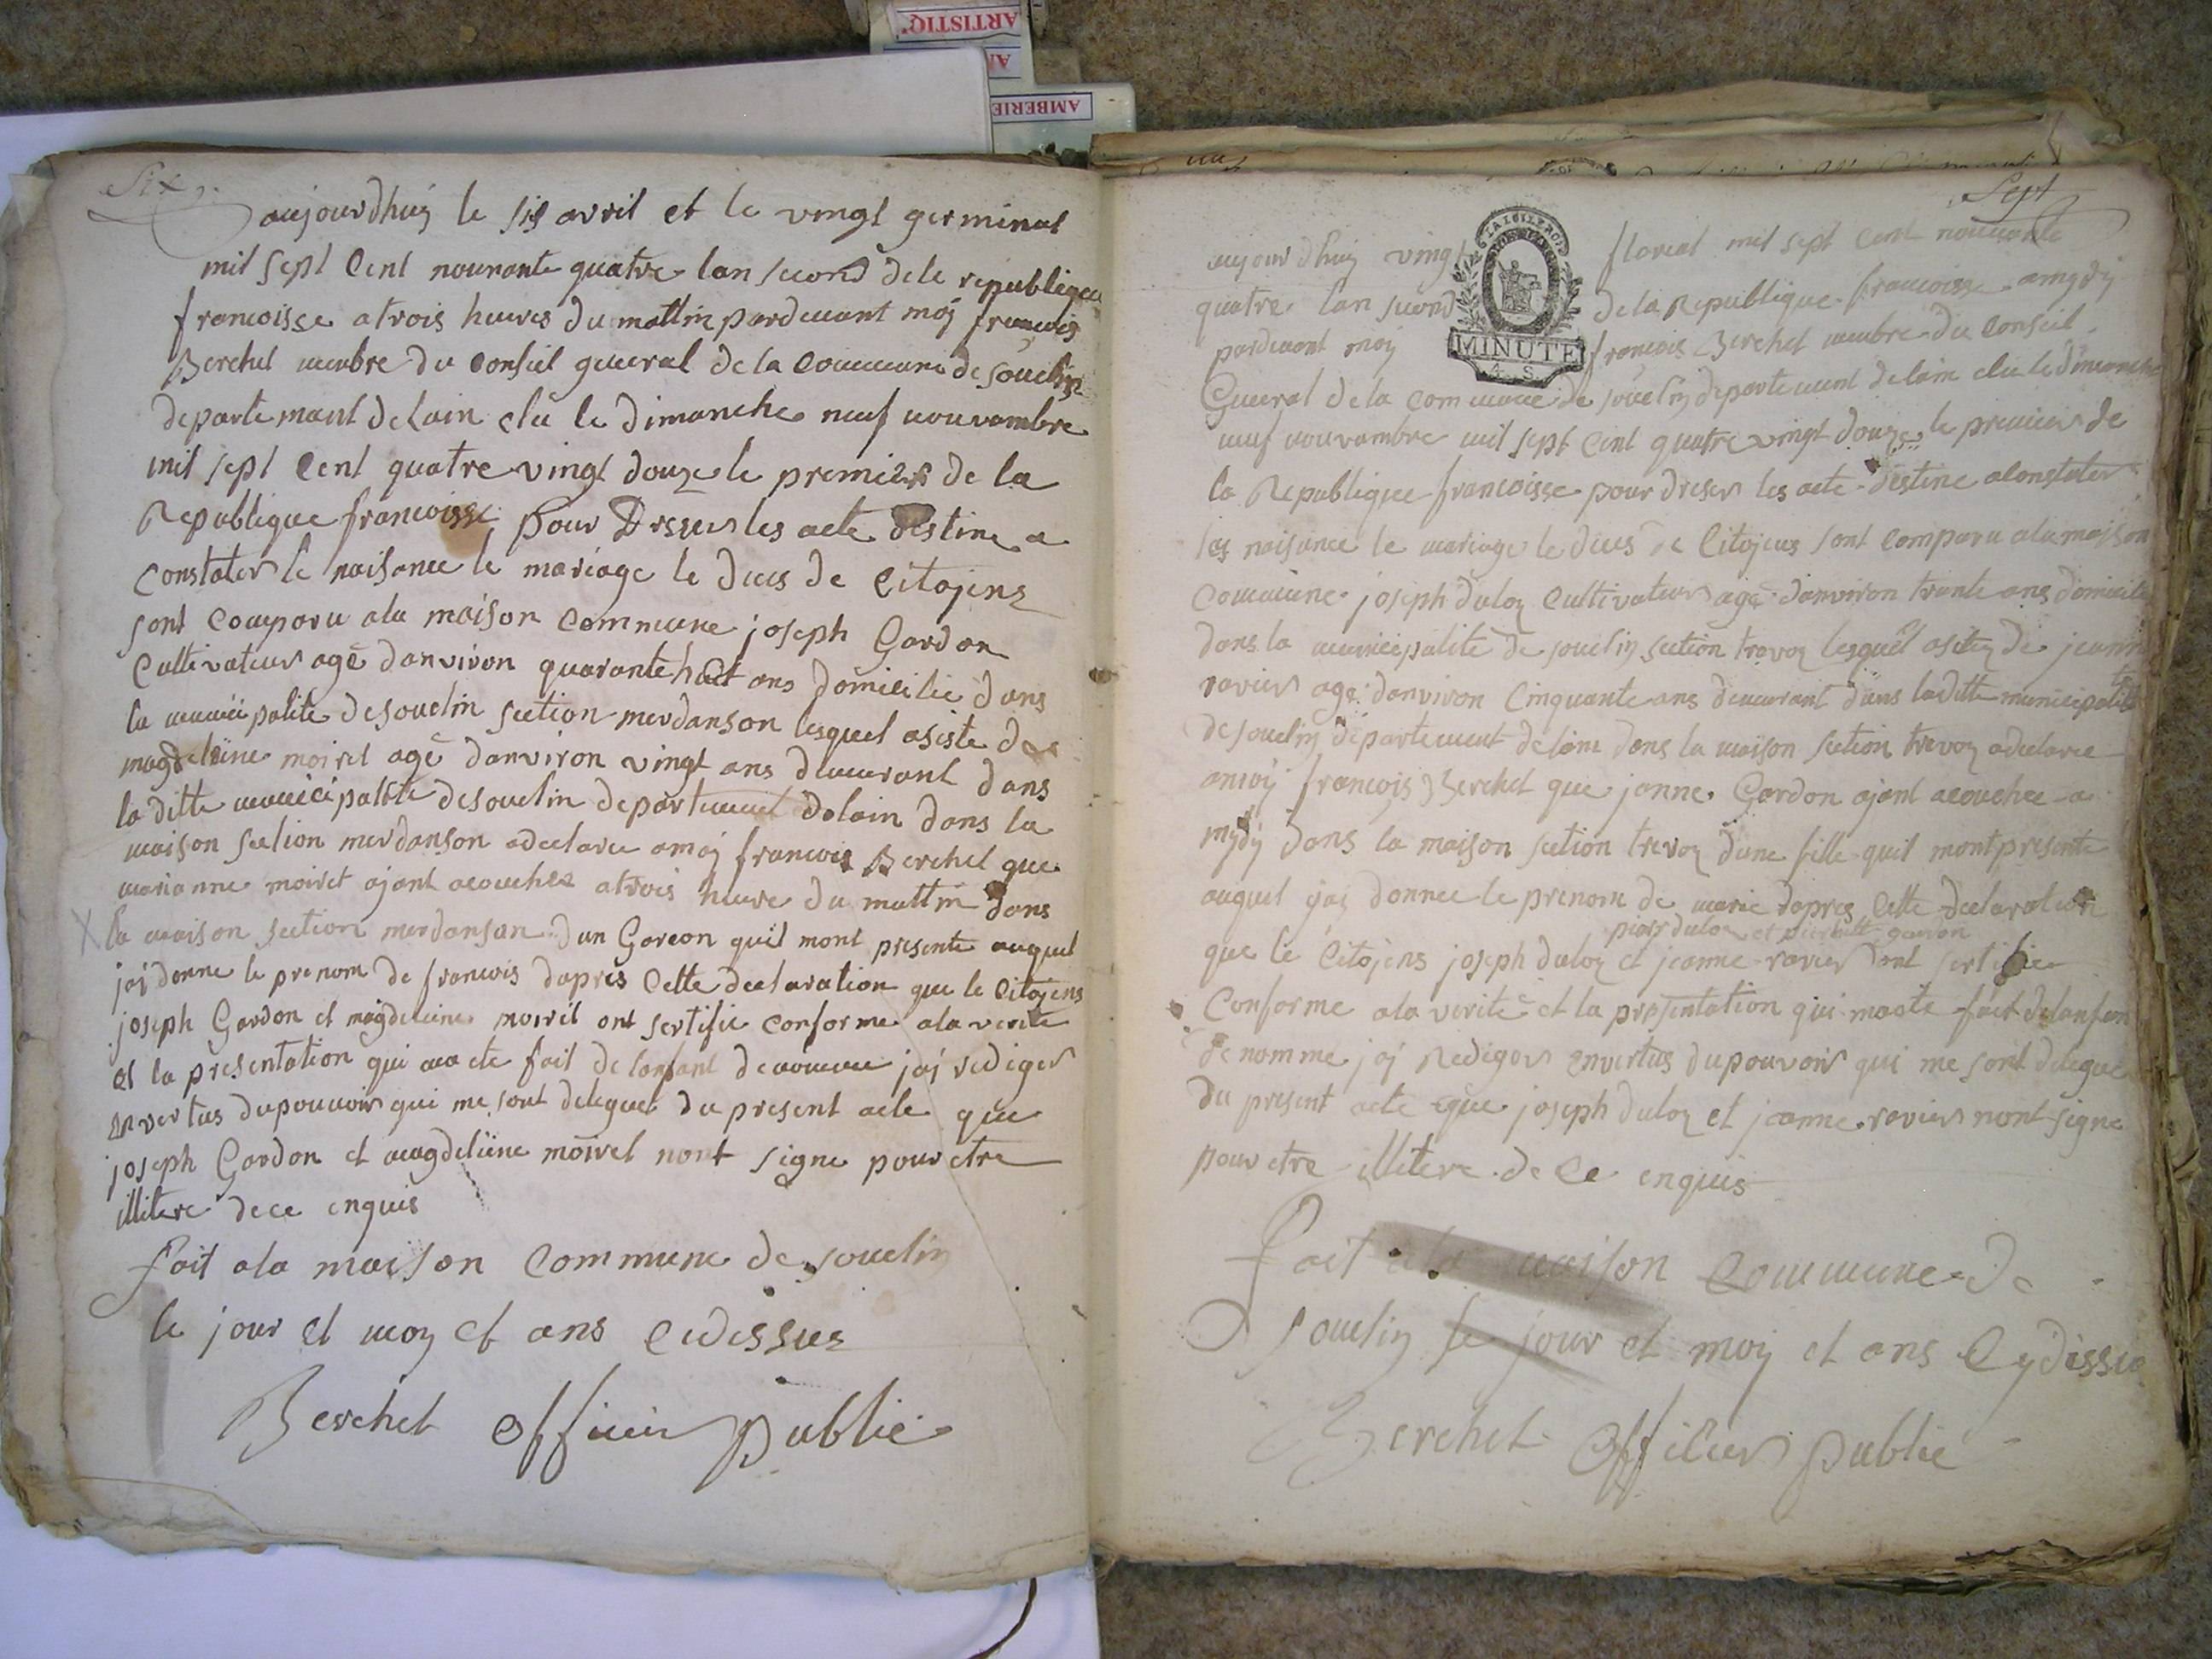 ARTISTIQ'
AMBERIE
Six
aujourdhuy le six avril et le vingt germinal
mil sept Cent nounante quatre lan second dele republique
francoisse atrois heures du mattin pardevant moy francois
Berchet membre du Conseil general de la Commune de souclin
departemant delain elu le dimanche neuf nouvambre
mil sept Cent quatre vingt douze le premier de la
Republique francoisse pour Dresser les acte destine a
Constater le naisance le mariage le deces de Citojens
sont Comparu ala maison Commune joseph Gardon
Cultivateur agé danviron quarante huit ans domicilie dans
la municipalite desouclin section merdanson lesquel asiste de
magdeleine moiret agé danviron vingt ans demeurant dans
la ditte municipalite desouclin departement delain dans la
maison section merdanson adeclaree amoy francois Berchet que
marianne moiret ajant acouchee atrois heure du mattin dans
la maison section merdanson dun Gareon quil mont presente auquel
jaj donne le prenom de francois dapres Cette declaration que le Citojens
joseph Gardon et magdeleine moiret ont sertifie Conforme ala verite
et la presentation qui ma ete fait delanfant denomme jaj rediger
envertus dupouvoir qui me sont delegue du present acte que
joseph Gardon et magdeleine moiret nont signe pour etre
illitere dece enquis
fait ala maison Commune de souclin
le jour et moy et ans Cidessus
Berchet officier public
Sept
aujourdhuy vingt floreal mil sept Cent nounante
quatre lan second dela Republique francoisse amydy
pardevant moy francois Berchet membre du Conseil
General dela Commune de souclin departement delain elu le dimanche
neuf nouvambre mil sept Cent quatre vingt douze le premier de
la Republique francoisse pour dreser les acte destine aConstater
les naisance le mariage le deces de Citojens sont Comparu ala maison
Commune joseph duloy Cultivateur agé danviron trante ans domicile
dans la municipalite de souclin section trevoy lesquel asitez de jeanne
ravier agé danviron Cinquante ans demeurant dans laditte municipalite
de souclin departement delain dans la maison section trevoy adeclaree
amoy francois Berchet que janne Gardon ajant acouchee a
mydy dans la maison section trevoy dune fille quil mont presente
auquel jaj donnee le prenom de marie dapres Cette declaration
que le Citojens joseph duloy et jeanne ravier ont sertifie
Conforme ala verite et la presentation qui maete fait delanfan
denomme jaj Rediger envertus dupouvoir qui me sont delegue
du present acte que joseph duloy et jeanne ravier nont signe
pour etre illitere de Ce enquis
fait ala maison Commune de
souclin le jour et moy et ans Cydessu
Berchet officier public
MINUTE
4. S.